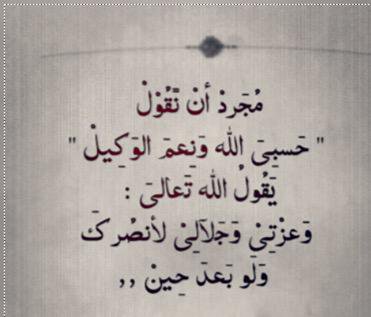 مُجَردْ أنْ تَّقُوْلْ
" حَسبِيَ الله وَنِعمَ الوَكِيلْ "
يَقُولُ الله تَعالىَ :
وَعزْتِيْ وَجَلآلِيْ لأنصُركَ
وَلَو بَعدَ حِينْ ,,